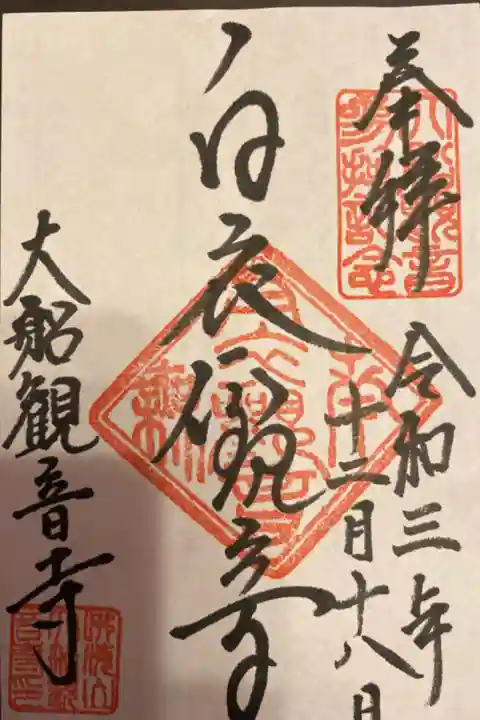 奉拝
令和三年
十二月十八日
白衣観音
大船観音寺